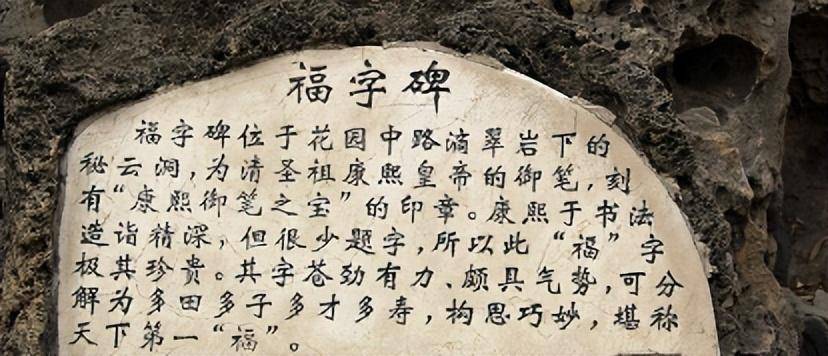 福字碑
福字碑位于花园中路滴翠岩下的
秘云洞，为清圣祖康熙皇帝的御笔，刻
有“康熙御笔之宝”的印章。康熙于书法
造诣精深，但很少题字，所以此“福”字
极其珍贵。其字苍劲有力、颇具气势，可分
解为多田多子多才多寿，构思巧妙，堪称
天下第一“福”。